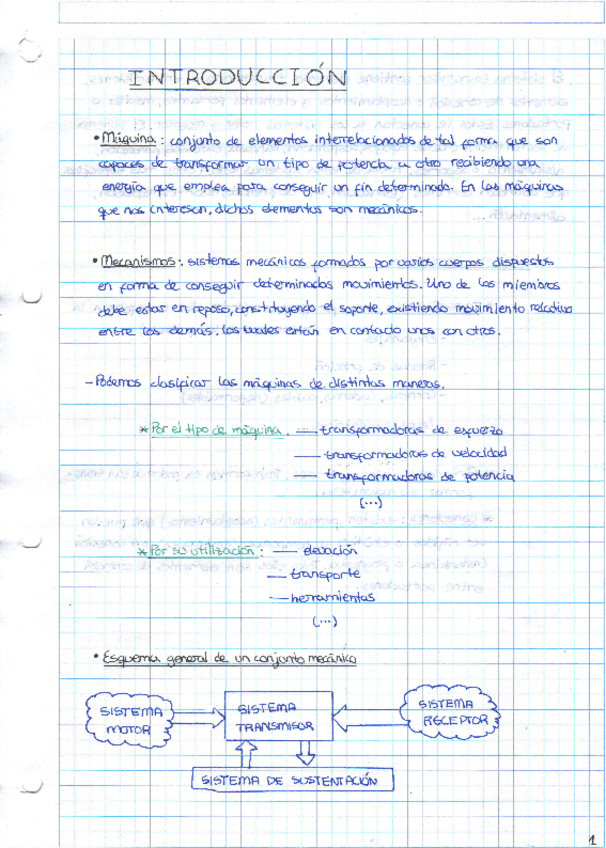 INTRODUCCIÓN
• Máquina : conjunto de elementos interrelacionados de tal forma que son
capaces de transformar un tipo de potencia u otro recibiendo una
energía que emplea para conseguir un fin determinado. En las máquinas
que nos interesan, dichos elementos son mecánicos.
• Mecanismos : sistemas mecánicos formados por varios cuerpos dispuestos
en forma de conseguir determinados movimientos. Uno de los miembros
debe estar en reposo, constituyendo el soporte, existiendo movimiento relativo
entre los demás. Los cuales están en contacto unos con otros.
- Podemos clasificar las máquinas de distintas maneras.
* Por el tipo de máquina. — transformadoras de esfuerzo
— transformadoras de velocidad
— transformadoras de potencia
(...)
* Por su utilización : — elevación
— transporte
— herramientas
(...)
• Esquema general de un conjunto mecánico
SISTEMA MOTOR
SISTEMA TRANSMISOR
SISTEMA RECEPTOR
SISTEMA DE SUSTENTACIÓN
1